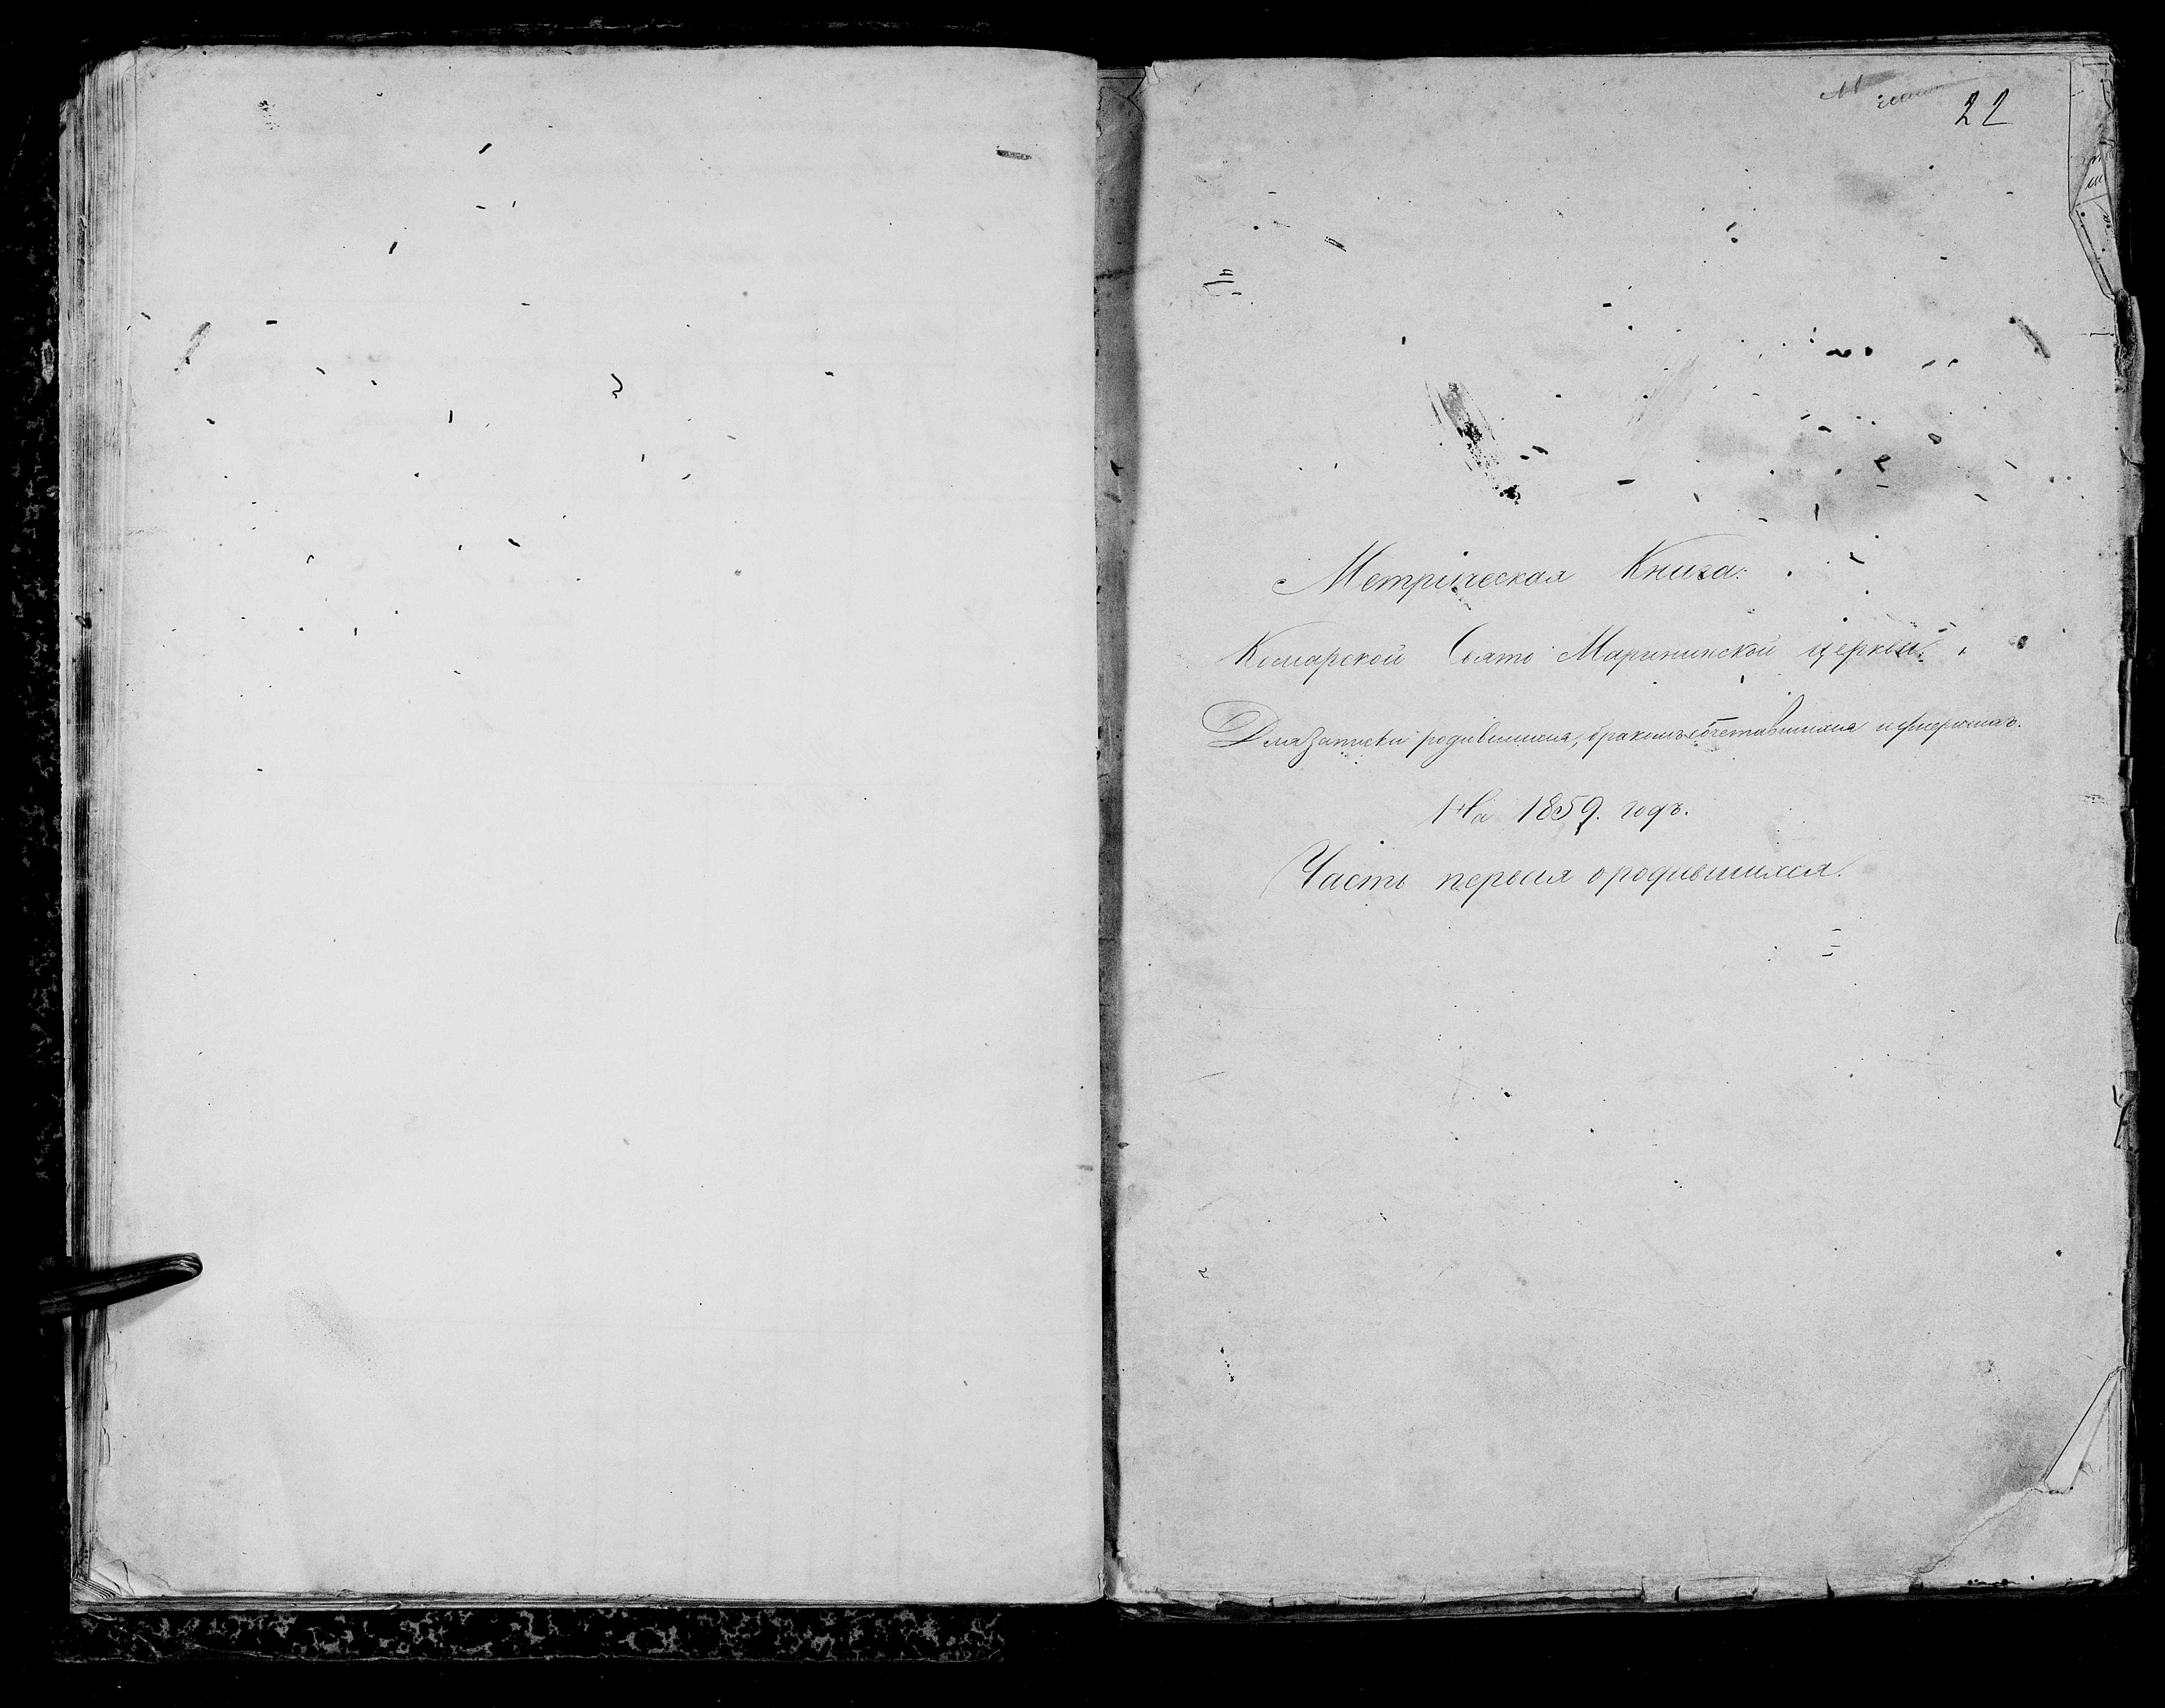 22
Метрическая Книга.
Комарской Свято Марининской церкви.
Для записки родившихся, бракомъ сочетавшихся и умершихъ.
На 1859. годъ.
Часть первая о родившихся.